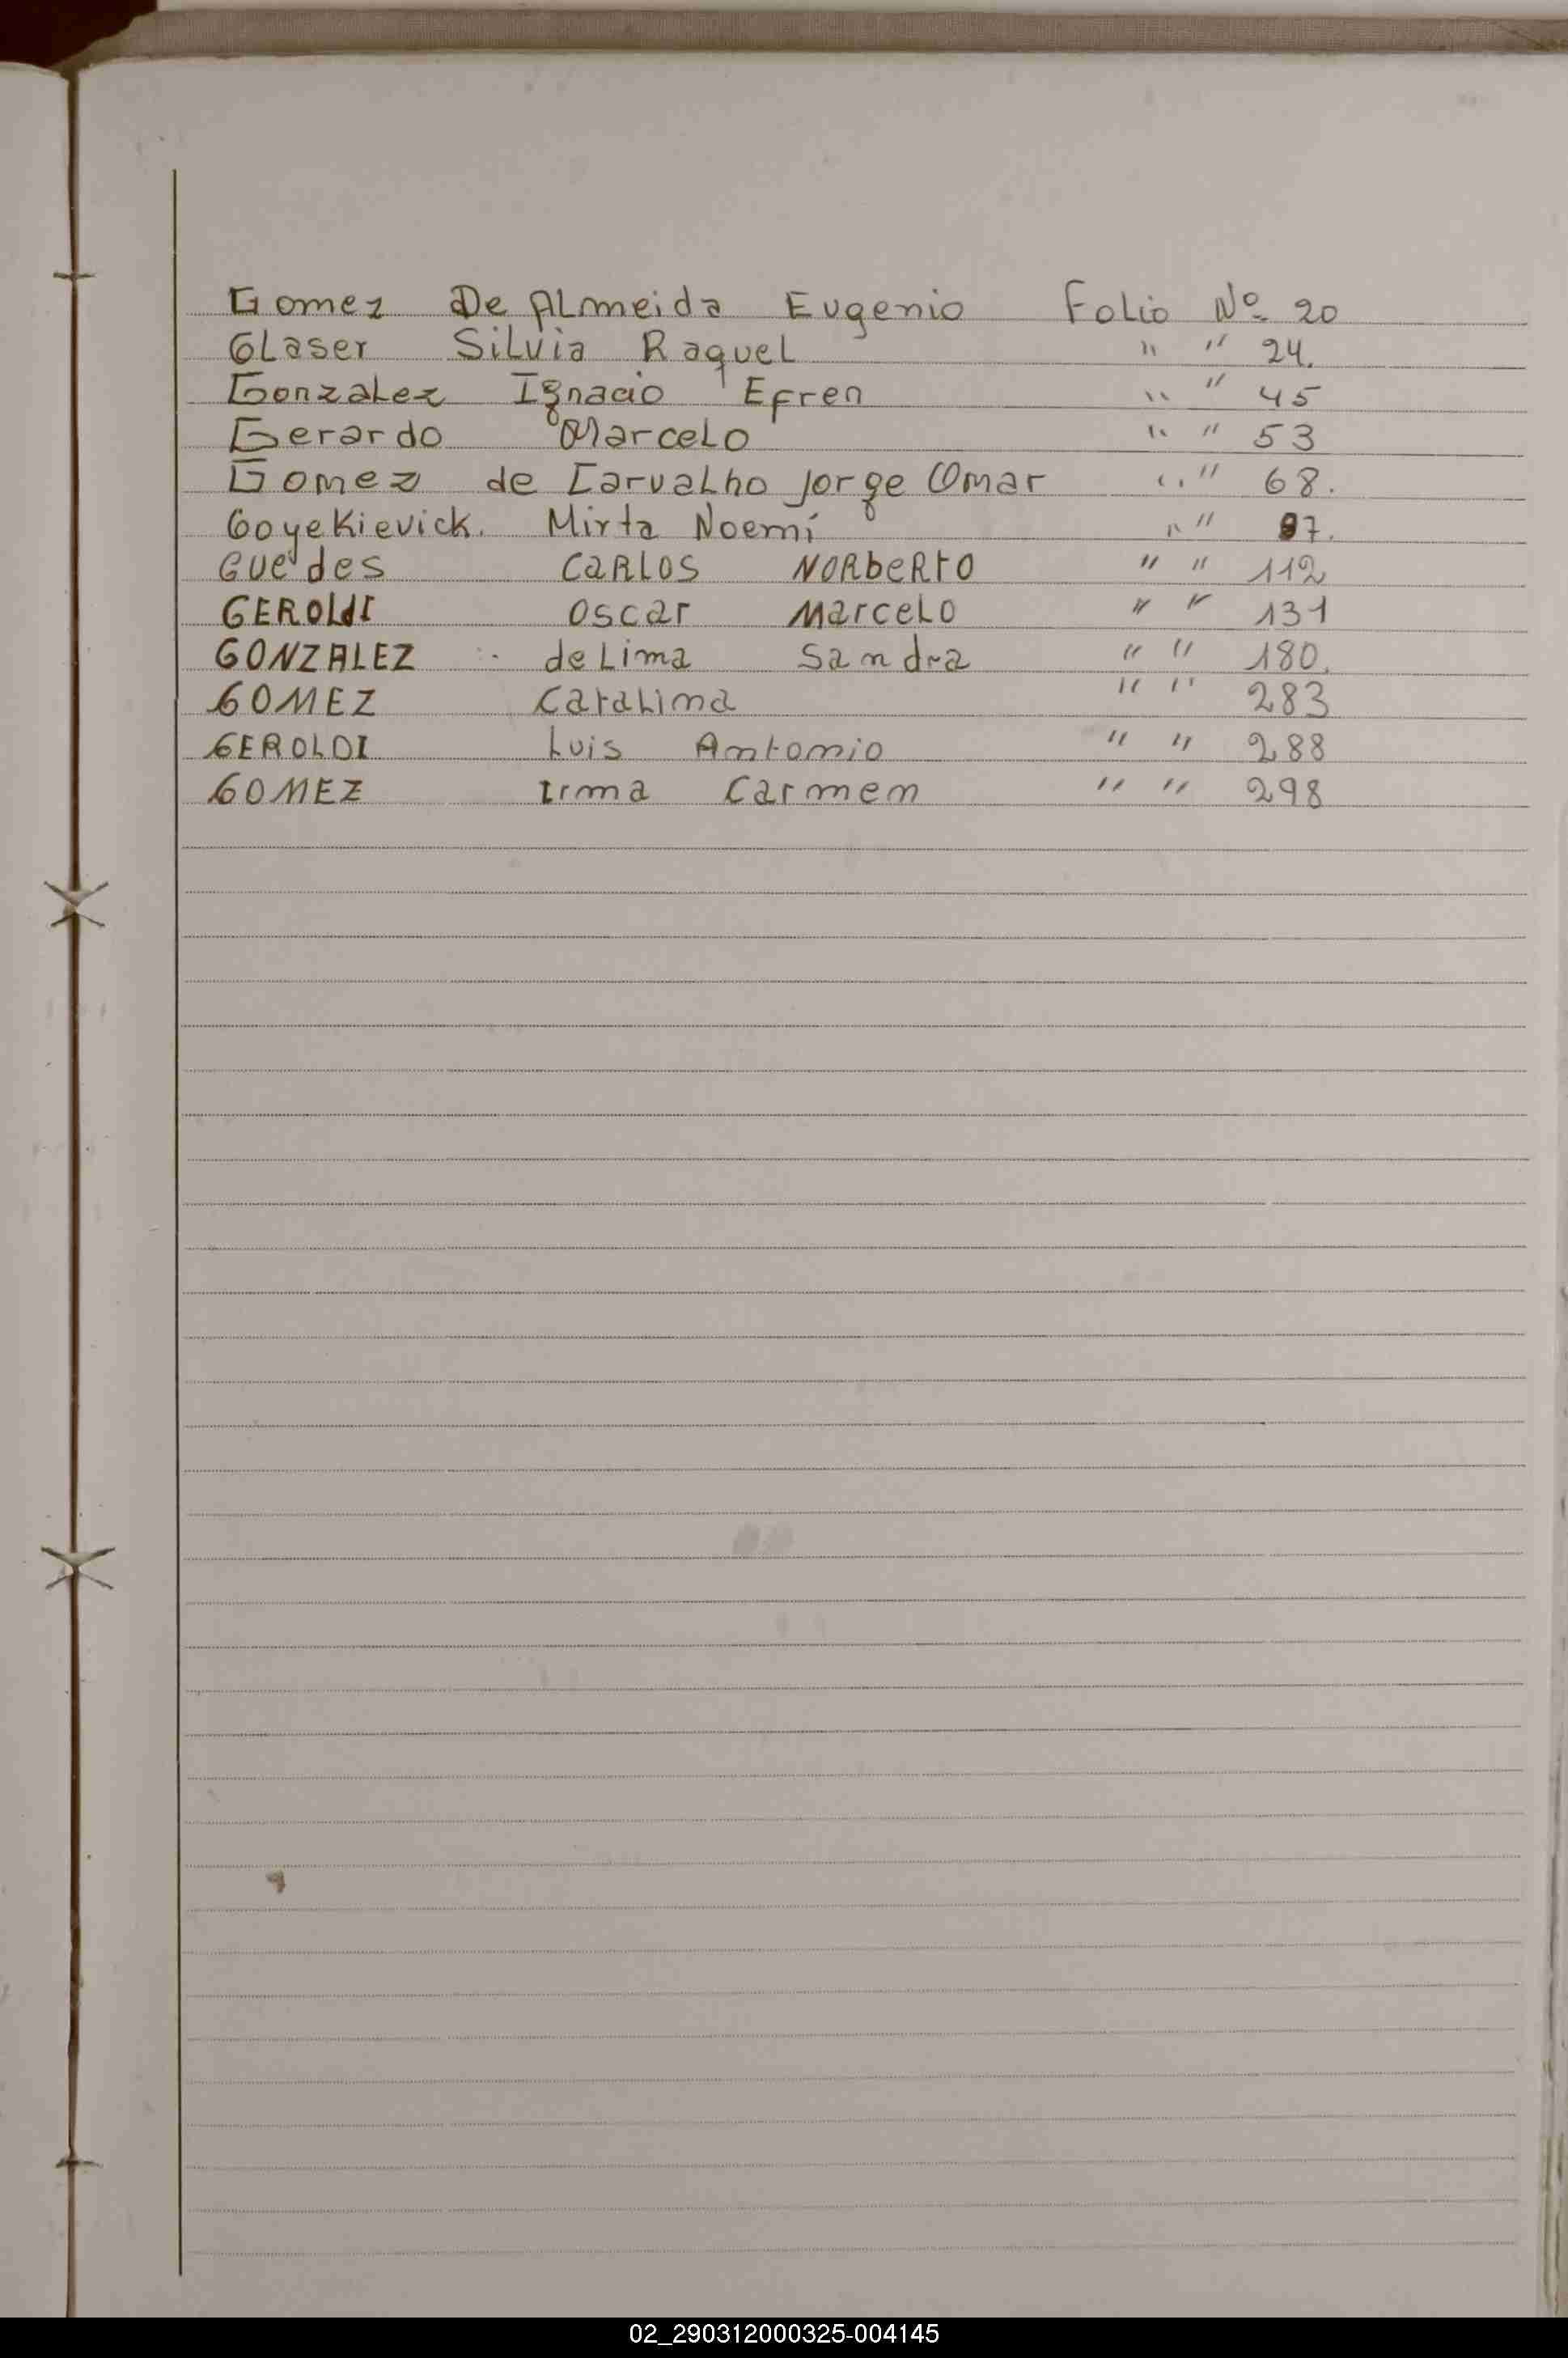 Gomez De ALmeida Eugenio Folio Nº 20
GLaser SiLvia RaqueL " " 24.
GonzaLez Ignacio Efren " " 45
Gerardo MarceLo " " 53
Gomez de CarvaLho Jorge Omar " " 68.
GoyeKievick. Mirta Noemí " " 97.
Guedes CaRLOS NORbeRtO " " 112
GEROLdI Oscar MarceLo " " 131
GONZALEZ deLima Sandra " " 180.
GOMEZ CataLina " " 283
GEROLDI Luis Antonio " " 288
GOMEZ Irma Carmen " " 298
02_290312000325-004145